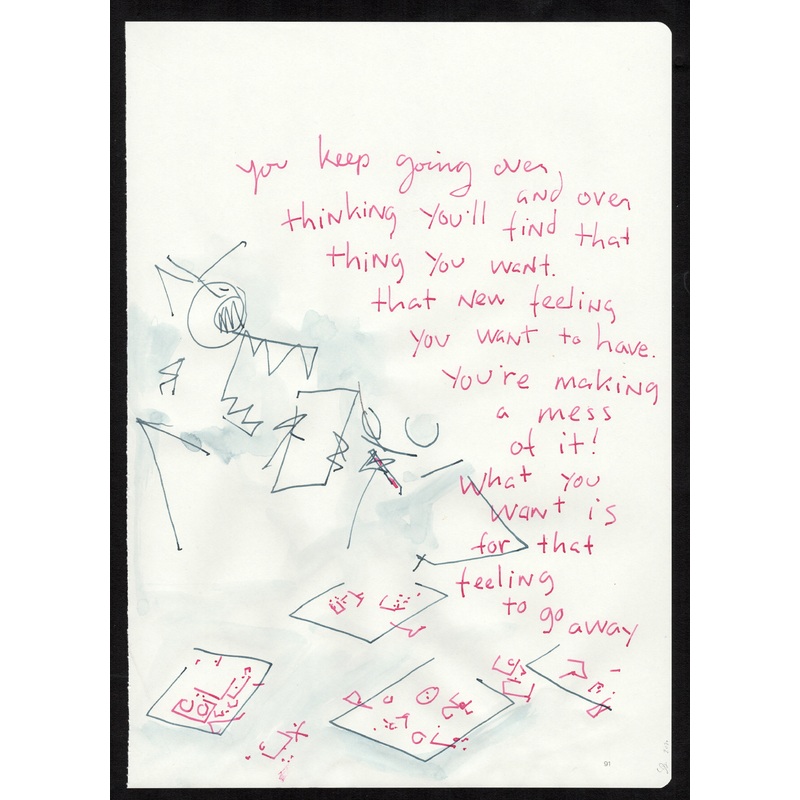 you keep going over,
and over
thinking you'll find that
thing you want.
that new feeling
you want to have.
you're making
a mess
of it!
What you
want is
for that
feeling
to go away
91